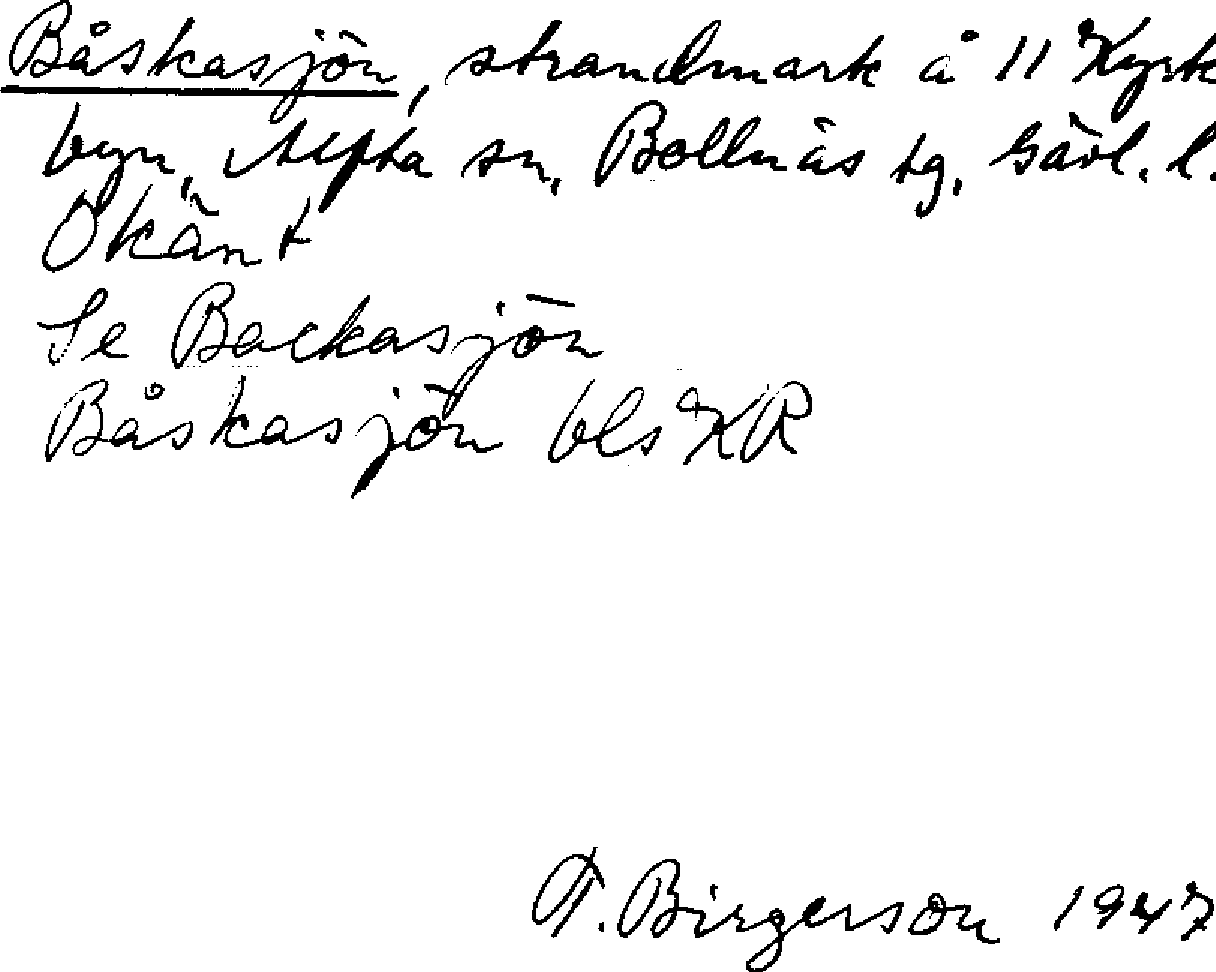 Båskasjön, strandmark å 11 Kyrk
byn, Alfta sn, Bollnäs tg, Gävl. l.
Okänt
Se Backasjön
Båskasjön bls KR
F. Birgerson 1947